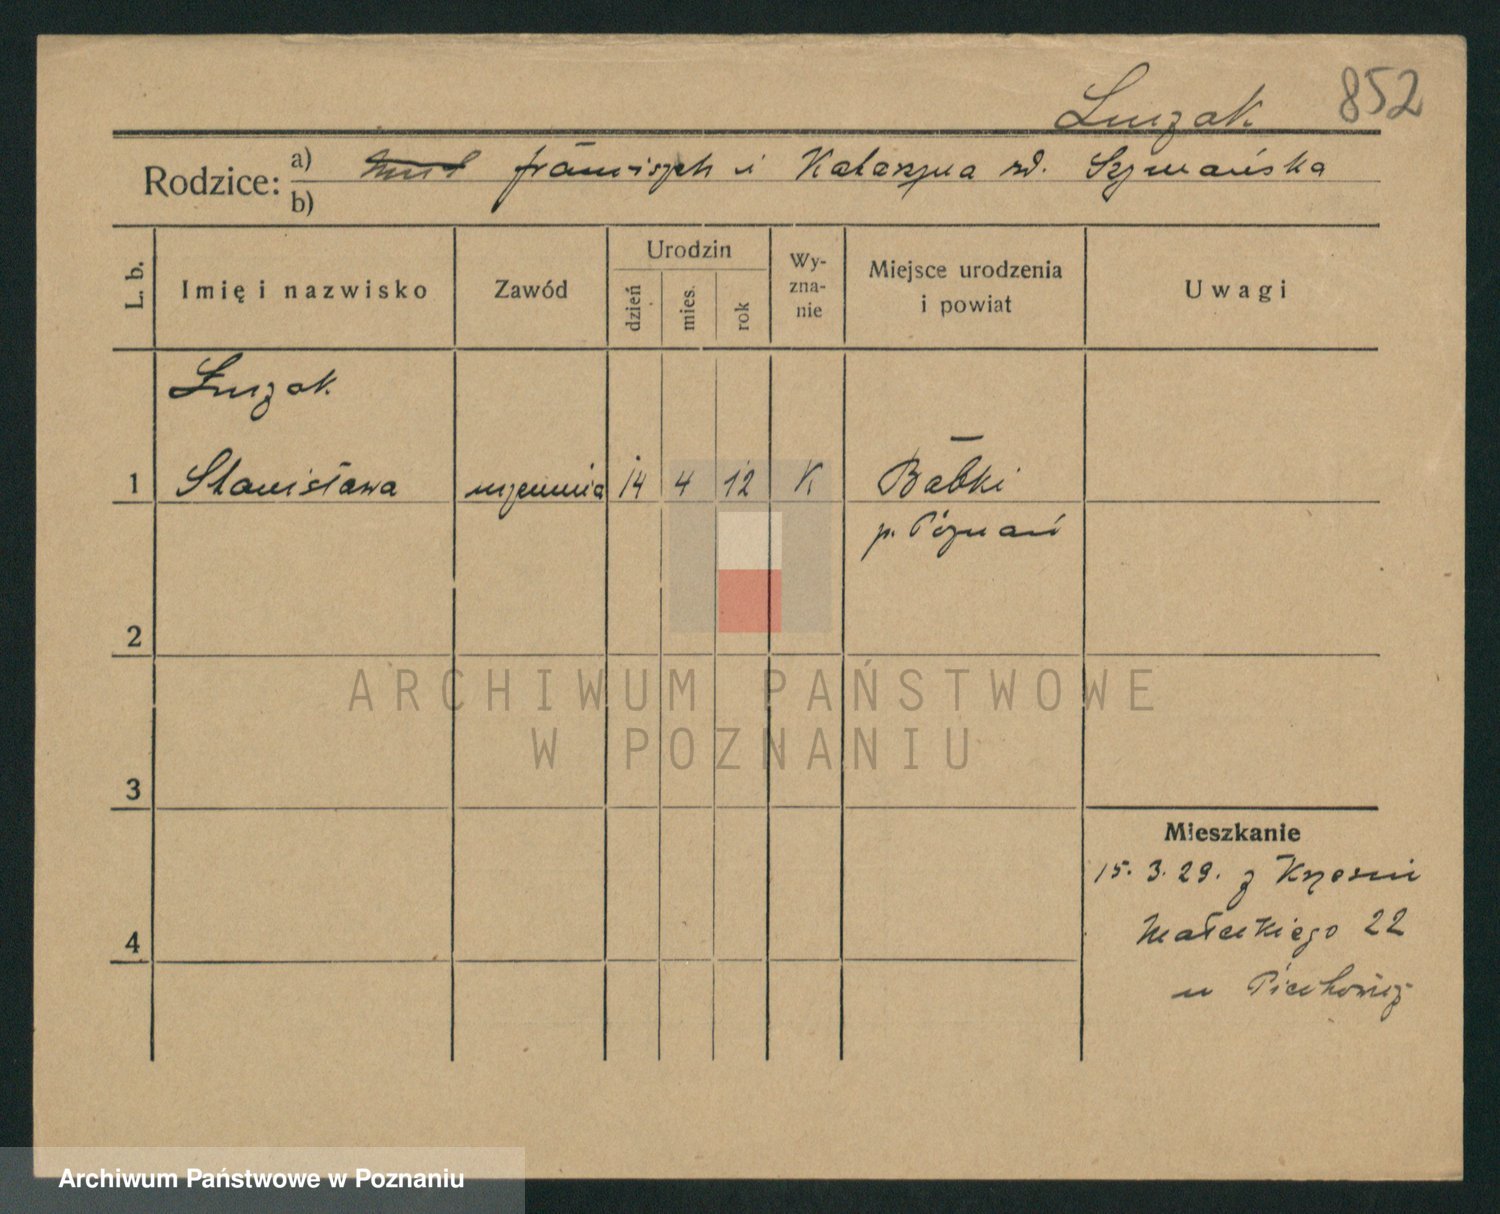 852
Łuczak
Rodzice: a) Franciszek i Katarzyna zd. Szymańska
b)
L. b.
Imię i nazwisko
Zawód
Urodzin
dzień
mies.
rok
Wy-
zna-
nie
Miejsce urodzenia
i powiat
Uwagi
Łuczak
1 Stanisława uczennica 14 4 12 K Babki
p. Poznań
2
ARCHIWUM PAŃSTWOWE
W POZNANIU
3
Mieszkanie
15. 3. 29. z Krzesin
Małeckiego 22
4
u
Archiwum Państwowe w Poznaniu